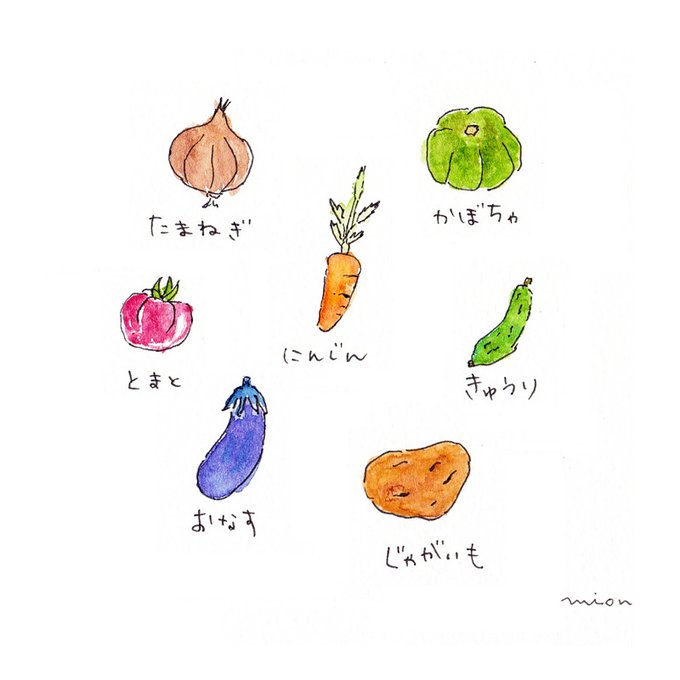 たまねぎ
かぼちゃ
にんじん
とまと
きゅうり
おなす
じゃがいも
mion